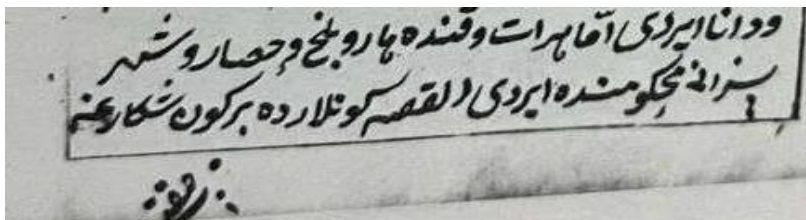 و دانا ایردی اما هرات و قندهار و بلخ و حصار و شهر
سبز انی محکومنده ایردی القصه کونلارده بر کون شکارغه